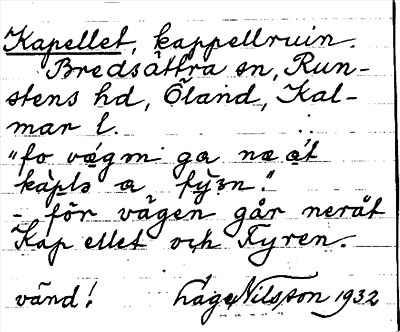 Kapellet, kappellruin.
Bredsättra sn, Run-
stens hd, Öland, Kal-
mar l.
"fo vægmi ga næ át
kàplə a fy̌ɜn."
- för vägen går neråt
Kapellet och Fyren.
vänd! Nilsson 1932